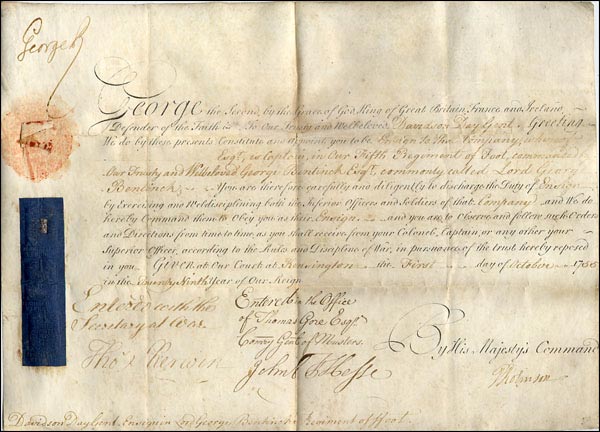 George R
George the Second, by the Grace of God King of Great Britain, France and Ireland
Defender of the Faith &c. To Our Trusty and Welbeloved Davidson Day Gent. Greeting
We do by these presents Constitute and Appoint you to be Ensign to that Company, whereof
Esqr. is Captain, in Our Fifth Regiment of Foot, commanded by
Our Trusty and Welbeloved George Bentinck Esqr. commonly called Lord George
Bentinck You are therefore carefully and diligently to discharge the Duty of Ensign
by Exercising and Well disciplining both the Inferior Officers and Soldiers of that Company and We do
hereby Command them to Obey you as their Ensign and you are to Observe and follow such Orders
and Directions from time to time, as you shall receive from your Colonel, Captain or any other your
Superior Officer, according to the Rules and Discipline of War, in pursuance of the trust hereby reposed
in you. Given at Our Court at Kensington the First day of October 1755
in the Twenty Ninth Year of Our Reign
Entered with the
Secretary at War
Tho: Sherwin
Entered in the Office
of Thomas Gore Esqr.
Comry Genl. of Musters.
John Hesse
By His Majesty's Command
T Robinson
Davidson Day Gent. Ensign in Lord George Bentinck's Regiment of Foot.